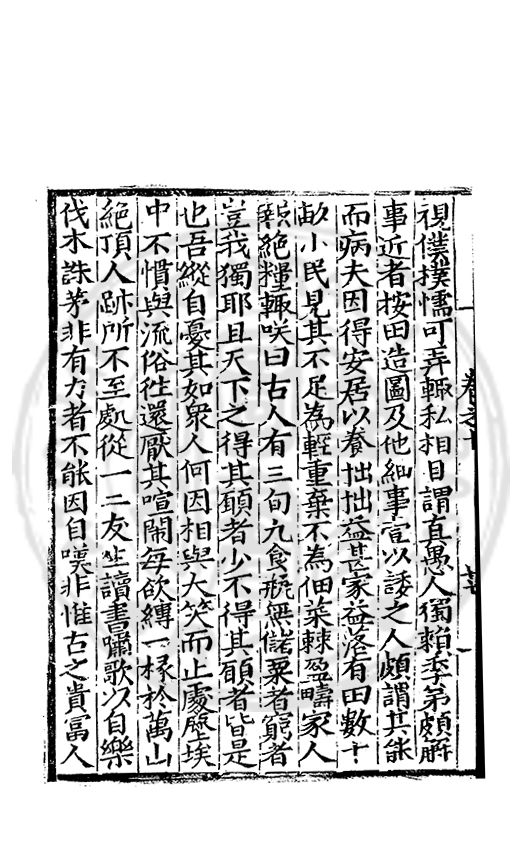 視僕撲懦可弄輙私相目謂直愚人獨賴季弟頗解
事近者按田造圖及他細事壹以諉之人頗謂其能
而病夫因得安居以養拙拙益甚家益落有田數十
畝小民見其不足為輕重棄不為佃菜棘盈疇家人
絶糧輙咲曰古人有三旬九食瓶無儲粟者窮者
豈我獨耶且天下之得其願者少不得其願者皆是
也吾縱自憂其如衆人何因相與大笑而止處塵埃
中不慣與流俗徃還厭其喧鬧每欲縳一椽於萬山
絶頂人跡所不至處從一二友生讀書嘯歌以自樂
伐木誅茅非有力者不能因自嘆非惟古之貴富人
卷之十